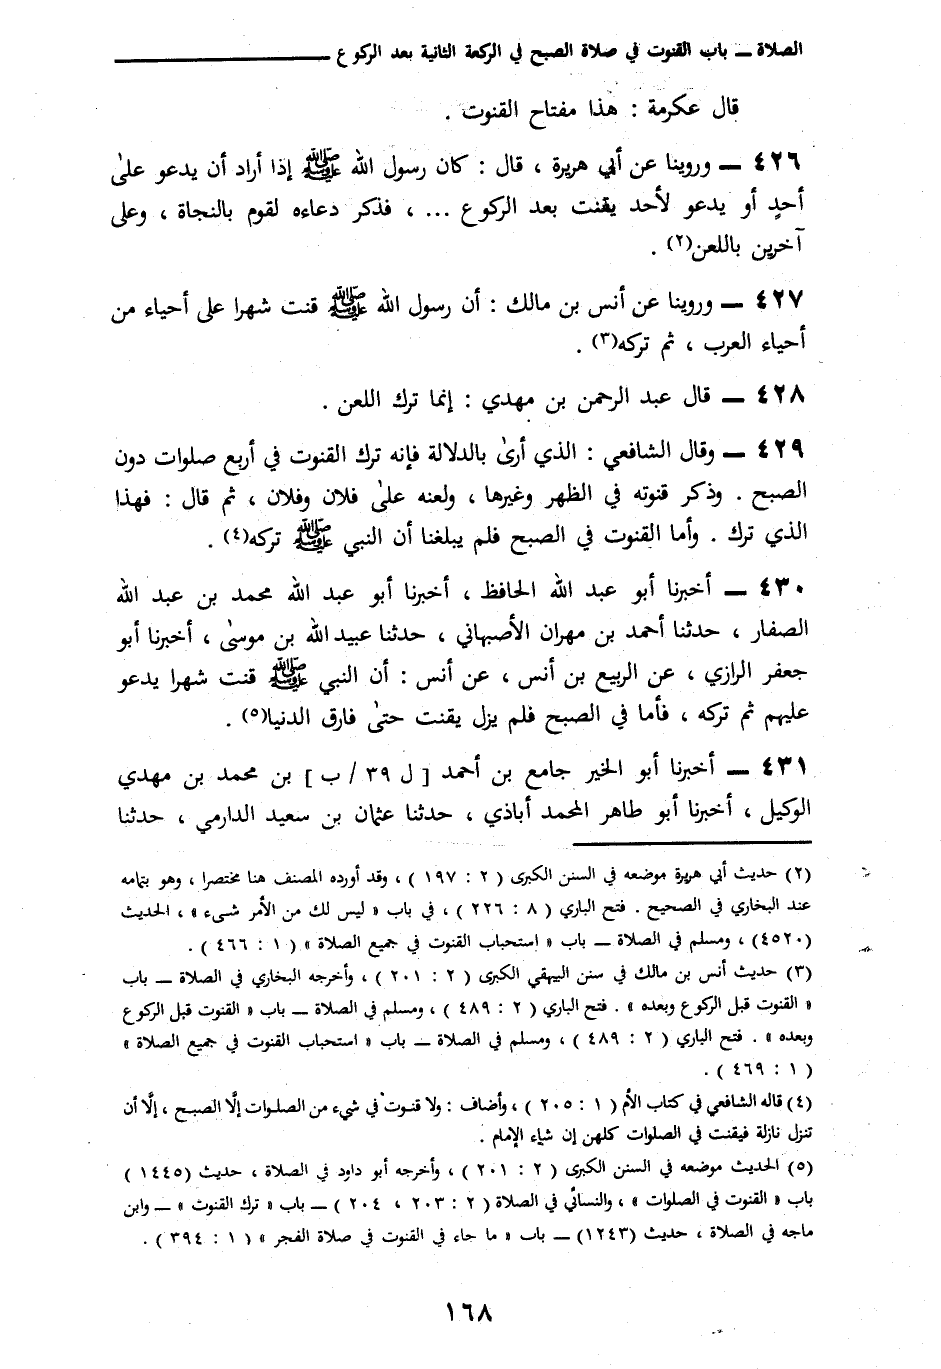 الصلاة ــ باب القنوت في صلاة الصبح في الركعة الثانية بعد الركوع
قال عكرمة : هذا مفتاح القنوت .
٤٢٦ ــ وروينا عن أبي هريرة ، قال : كان رسول الله ﷺ إذا أراد أن يدعو علىٰ
أحدٍ أو يدعو لأحد يقنت بعد الركوع ... ، فذكر دعاءه لقوم بالنجاة ، وعلى
آخرين باللعن(٢) .
٤٢٧ ــ وروينا عن أنس بن مالك : أن رسول الله ﷺ قنت شهرا على أحياء من
أحياء العرب ، ثم تركه(٣) .
٤٢٨ ــ قال عبد الرحمن بن مهدي : إنما ترك اللعن .
٤٢٩ ــ وقال الشافعي : الذي أرىٰ بالدلالة فإنه ترك القنوت في أربع صلوات دون
الصبح . وذكر قنوته في الظهر وغيرها ، ولعنه علىٰ فلان وفلان ، ثم قال : فهذا
الذي ترك . وأما القنوت في الصبح فلم يبلغنا أن النبي ﷺ تركه(٤) .
٤٣٠ ــ أخبرنا أبو عبد الله الحافظ ، أخبرنا أبو عبد الله محمد بن عبد الله
الصفار ، حدثنا أحمد بن مهران الأصبهاني ، حدثنا عبيد الله بن موسىٰ ، أخبرنا أبو
جعفر الرازي ، عن الربيع بن أنس ، عن أنس : أن النبي ﷺ قنت شهرا يدعو
عليهم ثم تركه ، فأما في الصبح فلم يزل يقنت حتىٰ فارق الدنيا(٥) .
٤٣١ ــ أخبرنا أبو الخير جامع بن أحمد [ ل ٣٩ / ب ] بن محمد بن مهدي
الوكيل ، أخبرنا أبو طاهر المحمد أباذي ، حدثنا عثمان بن سعيد الدارمي ، حدثنا
(٢) حديث أبي هريرة موضعه في السنن الكبرى ( ٢ : ١٩٧ ) ، وقد أورده المصنف هنا مختصرا ، وهو بتمامه
عند البخاري في الصحيح . فتح الباري ( ٨ : ٢٢٦ ) ، في باب « ليس لك من الأمر شيء » ، الحديث
(٤٥٢٠) ، ومسلم في الصلاة ــ باب « إستحباب القنوت في جميع الصلاة » ( ١ : ٤٦٦ ) .
(٣) حديث أنس بن مالك في سنن البيهقي الكبرى ( ٢ : ٢٠١ ) ، وأخرجه البخاري في الصلاة ــ باب
« القنوت قبل الركوع وبعده » . فتح الباري ( ٢ : ٤٨٩ ) ، ومسلم في الصلاة ــ باب « القنوت قبل الركوع
وبعده » . فتح الباري ( ٢ : ٤٨٩ ) ، ومسلم في الصلاة ــ باب « استحباب القنوت في جميع الصلاة »
( ١ : ٤٦٩ ) .
(٤) قاله الشافعي في كتاب الأم ( ١ : ٢٠٥ ) ، وأضاف : ولا قنوت في شيء من الصلوات إلَّا الصبح ، إلَّا أن
تنزل نازلة فيقنت في الصلوات كلهن إن شاء الإمام .
(٥) الحديث موضعه في السنن الكبرى ( ٢ : ٢٠١ ) ، وأخرجه أبو داود في الصلاة ، حديث (١٤٤٥ )
باب « القنوت في الصلوات » ، والنسائي في الصلاة ( ٢ : ٢٠٣ ، ٢٠٤ ) ــ باب « ترك القنوت » ــ وابن
ماجه في الصلاة ، حديث (١٢٤٣) ــ باب « ما جاء في القنوت في صلاة الفجر » ( ١ : ٣٩٤ ) .
١٦٨